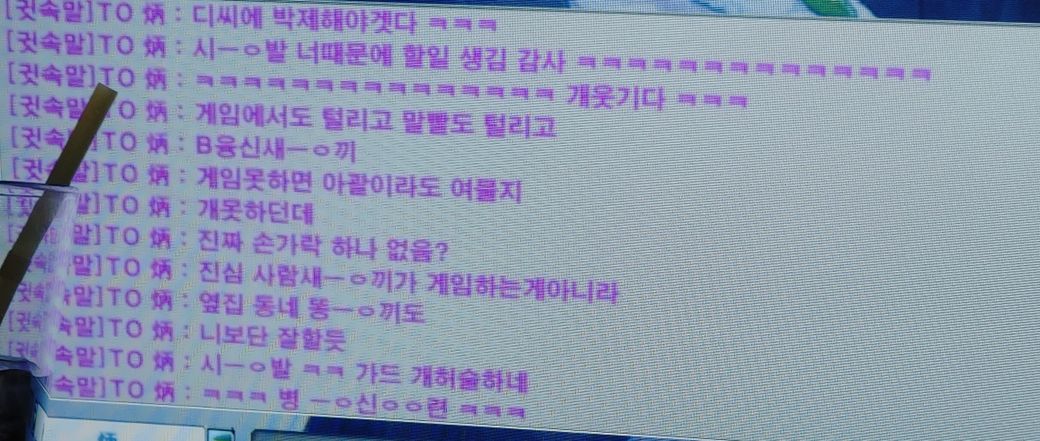 [귓속말]TO 炳 : 디씨에 박제해야겟다 ㅋㅋㅋ
[귓속말]TO 炳 : 시ㅡㅇ발 너때문에 할일 생김 감사 ㅋㅋㅋㅋㅋㅋㅋㅋㅋㅋㅋㅋㅋㅋ
[귓속말]TO 炳 : ㅋㅋㅋㅋㅋㅋㅋㅋㅋㅋㅋㅋㅋㅋㅋ 개웃기다 ㅋㅋㅋ
[귓속말]TO 炳 : 게임에서도 털리고 말빨도 털리고
[귓속말]TO 炳 : B융신새ㅡㅇ끼
[귓속말]TO 炳 : 게임못하면 아괄이라도 여물지
[귓속말]TO 炳 : 개못하던데
[귓속말]TO 炳 : 진짜 손가락 하나 없음?
[귓속말]TO 炳 : 진심 사람새ㅡㅇ끼가 게임하는게아니라
[귓속말]TO 炳 : 옆집 동네 똥ㅡㅇ끼도
[귓속말]TO 炳 : 니보단 잘할듯
[귓속말]TO 炳 : 시ㅡㅇ발 ㅋㅋ 가드 개허술하네
속말]TO 炳 : ㅋㅋㅋ 병 ㅡㅇ신ㅇㅇ련 ㅋㅋㅋ
炳